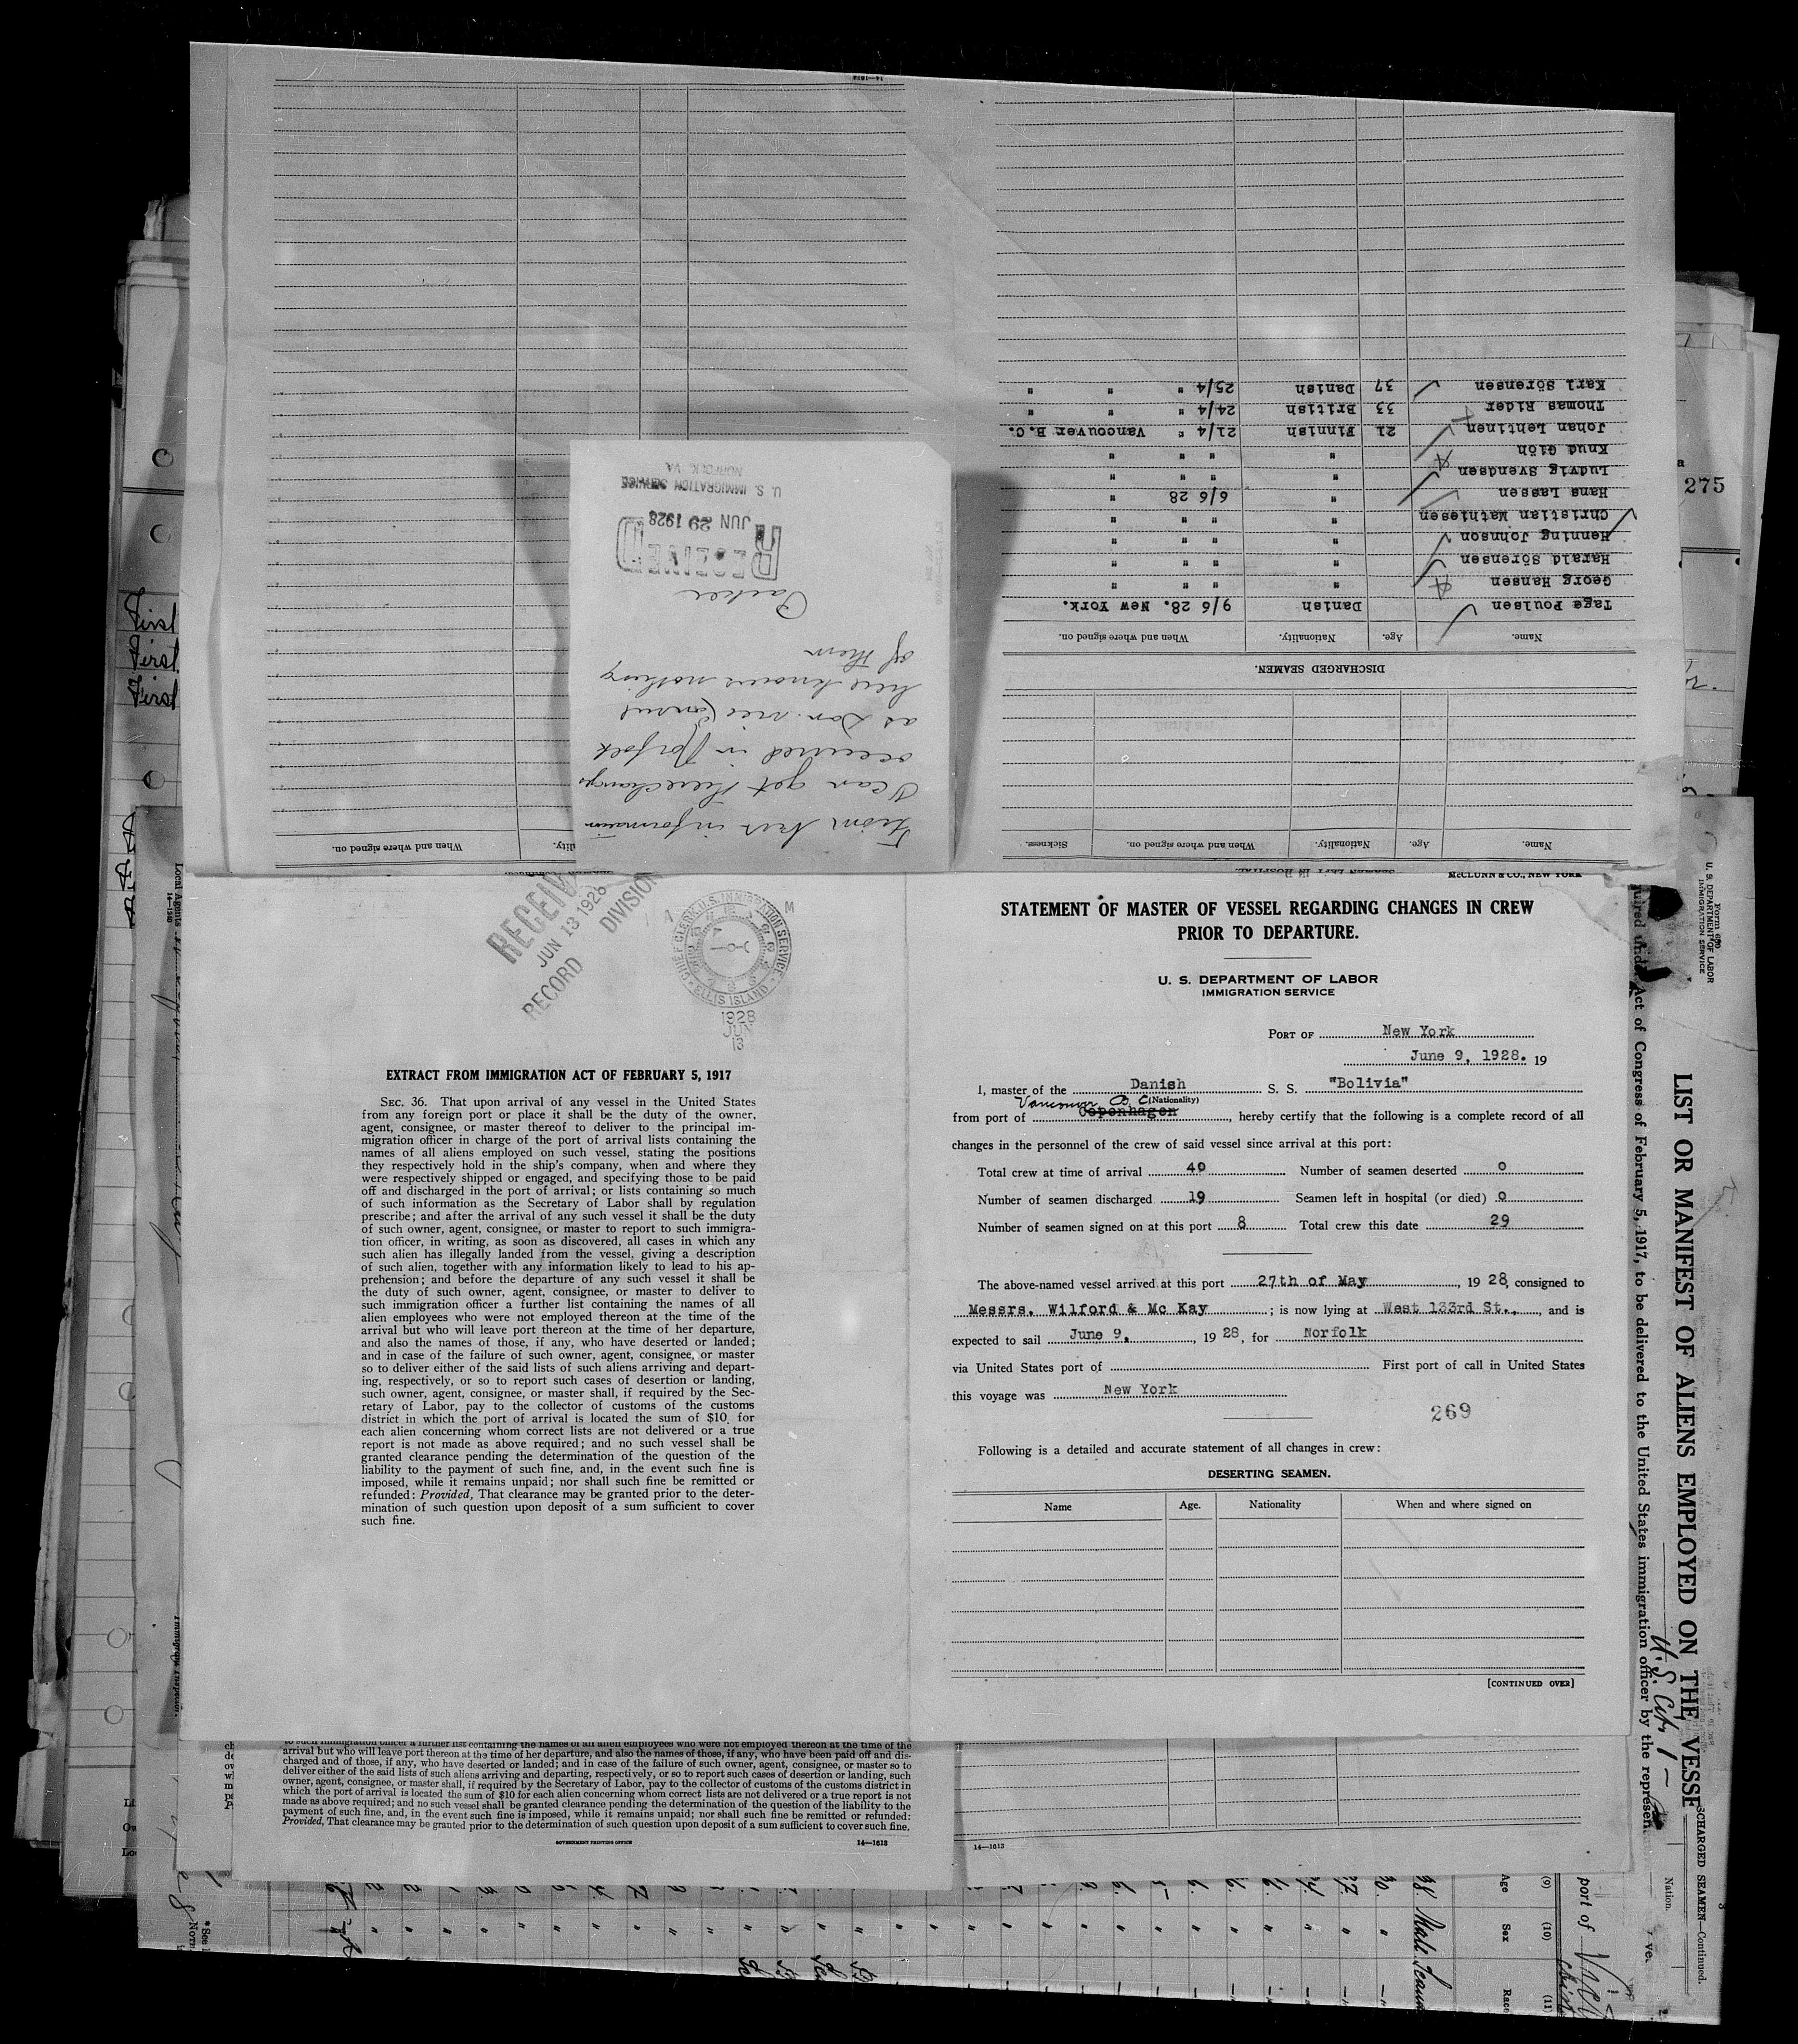 STATEMENT OF MASTER OF VESSEL REGARDING CHANGES IN CREW
PRIOR TO DEPARTURE.
U. S. DEPARTMENT OF LABOR
IMMIGRATION SERVICE
PORT OF New York
June 9, 1928. 19
I, master of the Danish S. S. "Bolivia"
(Nationality)
Vancouver B.C.
from port of Copenhagen, hereby certify that the following is a complete record of all
changes in the personnel of the crew of said vessel since arrival at this port:
Total crew at time of arrival 40 Number of seamen deserted 0
Number of seamen discharged 19 Seamen left in hospital (or died) 0
Number of seamen signed on at this port 8 Total crew this date 29
The above-named vessel arrived at this port 27th of May, 1928, consigned to
Messrs. Wilford & Mc Kay; is now lying at West 133rd St., and is
expected to sail June 9, 1928, for Norfolk
via United States port of First port of call in United States
this voyage was New York
269
Following is a detailed and accurate statement of all changes in crew:
DESERTING SEAMEN.
Name Age. Nationality When and where signed on
[CONTINUED OVER]
RECEIV
JUN 13 1928
RECORD DIVISION
CHIEF CLERK U.S. IMMIGRATION SERVICE
ELLIS ISLAND
A M
1928
JUN
13
EXTRACT FROM IMMIGRATION ACT OF FEBRUARY 5, 1917
SEC. 36. That upon arrival of any vessel in the United States
from any foreign port or place it shall be the duty of the owner,
agent, consignee, or master thereof to deliver to the principal im-
migration officer in charge of the port of arrival lists containing the
names of all aliens employed on such vessel, stating the positions
they respectively hold in the ship's company, when and where they
were respectively shipped or engaged, and specifying those to be paid
off and discharged in the port of arrival; or lists containing so much
of such information as the Secretary of Labor shall by regulation
prescribe; and after the arrival of any such vessel it shall be the duty
of such owner, agent, consignee, or master to report to such immigra-
tion officer, in writing, as soon as discovered, all cases in which any
such alien has illegally landed from the vessel, giving a description
of such alien, together with any information likely to lead to his ap-
prehension; and before the departure of any such vessel it shall be
the duty of such owner, agent, consignee, or master to deliver to
such immigration officer a further list containing the names of all
alien employees who were not employed thereon at the time of the
arrival but who will leave port thereon at the time of her departure,
and also the names of those, if any, who have deserted or landed;
and in case of the failure of such owner, agent, consignee, or master
so to deliver either of the said lists of such aliens arriving and depart-
ing, respectively, or so to report such cases of desertion or landing,
such owner, agent, consignee, or master shall, if required by the Sec-
retary of Labor, pay to the collector of customs of the customs
district in which the port of arrival is located the sum of $10 for
each alien concerning whom correct lists are not delivered or a true
report is not made as above required; and no such vessel shall be
granted clearance pending the determination of the question of the
liability to the payment of such fine, and, in the event such fine is
imposed, while it remains unpaid; nor shall such fine be remitted or
refunded: Provided, That clearance may be granted prior to the deter-
mination of such question upon deposit of a sum sufficient to cover
such fine.
SEAMEN LEFT IN HOSPITAL.
McCLUNN & CO., NEW YORK
Name. Age. Nationality. When and where signed on. Sickness.
DISCHARGED SEAMEN.
Name. Age. Nationality. When and where signed on.
Tage Poulsen Danish 9/6 28. New York.
Georg Hansen " " " "
Harald Sörensen " " " "
Henning Johnson " " " "
Christian Mathiesen " " " "
Hans Lassen " 6/6 28 "
Ludvig Svendsen " " " "
Knud Glöh " " " "
Johan Lehtinen 21 Finnish 21/4 " Vancouver B.C.
Thomas Rider 33 British 24/4 " " "
Karl Sörensen 37 Danish 25/4 " " "
When and where signed on.
14—1613
From best information
I can get these changes
occurred in Norfolk
as Dan. vice Consul
here knows nothing
of them
Parker
RECEIVED
JUN 29 1928
U. S. IMMIGRATION SERVICE
NORFOLK, VA.
to such immigration officer a further list containing the names of all alien employees who were not employed thereon at the time of the
arrival but who will leave port thereon at the time of her departure, and also the names of those, if any, who have been paid off and dis-
charged and of those, if any, who have deserted or landed; and in case of the failure of such owner, agent, consignee, or master so to
deliver either of the said lists of such aliens arriving and departing, respectively, or so to report such cases of desertion or landing, such
owner, agent, consignee, or master shall, if required by the Secretary of Labor, pay to the collector of customs of the customs district in
which the port of arrival is located the sum of $10 for each alien concerning whom correct lists are not delivered or a true report is not
made as above required; and no such vessel shall be granted clearance pending the determination of the question of the liability to the
payment of such fine, and, in the event such fine is imposed, while it remains unpaid; nor shall such fine be remitted or refunded:
Provided, That clearance may be granted prior to the determination of such question upon deposit of a sum sufficient to cover such fine.
GOVERNMENT PRINTING OFFICE 14—1613
14—1613
LIST OR MANIFEST OF ALIENS EMPLOYED ON THE VESSE
Act of Congress of February 5, 1917, to be delivered to the United States immigration officer by the represen
Form 680
U. S. DEPARTMENT OF LABOR
IMMIGRATION SERVICE
SCHARGED SEAMEN—Continued.
Nation.
port of
(9) (10) (11)
Age Sex Race
38 Male
275
First
First
First
Local Agents
14—1240